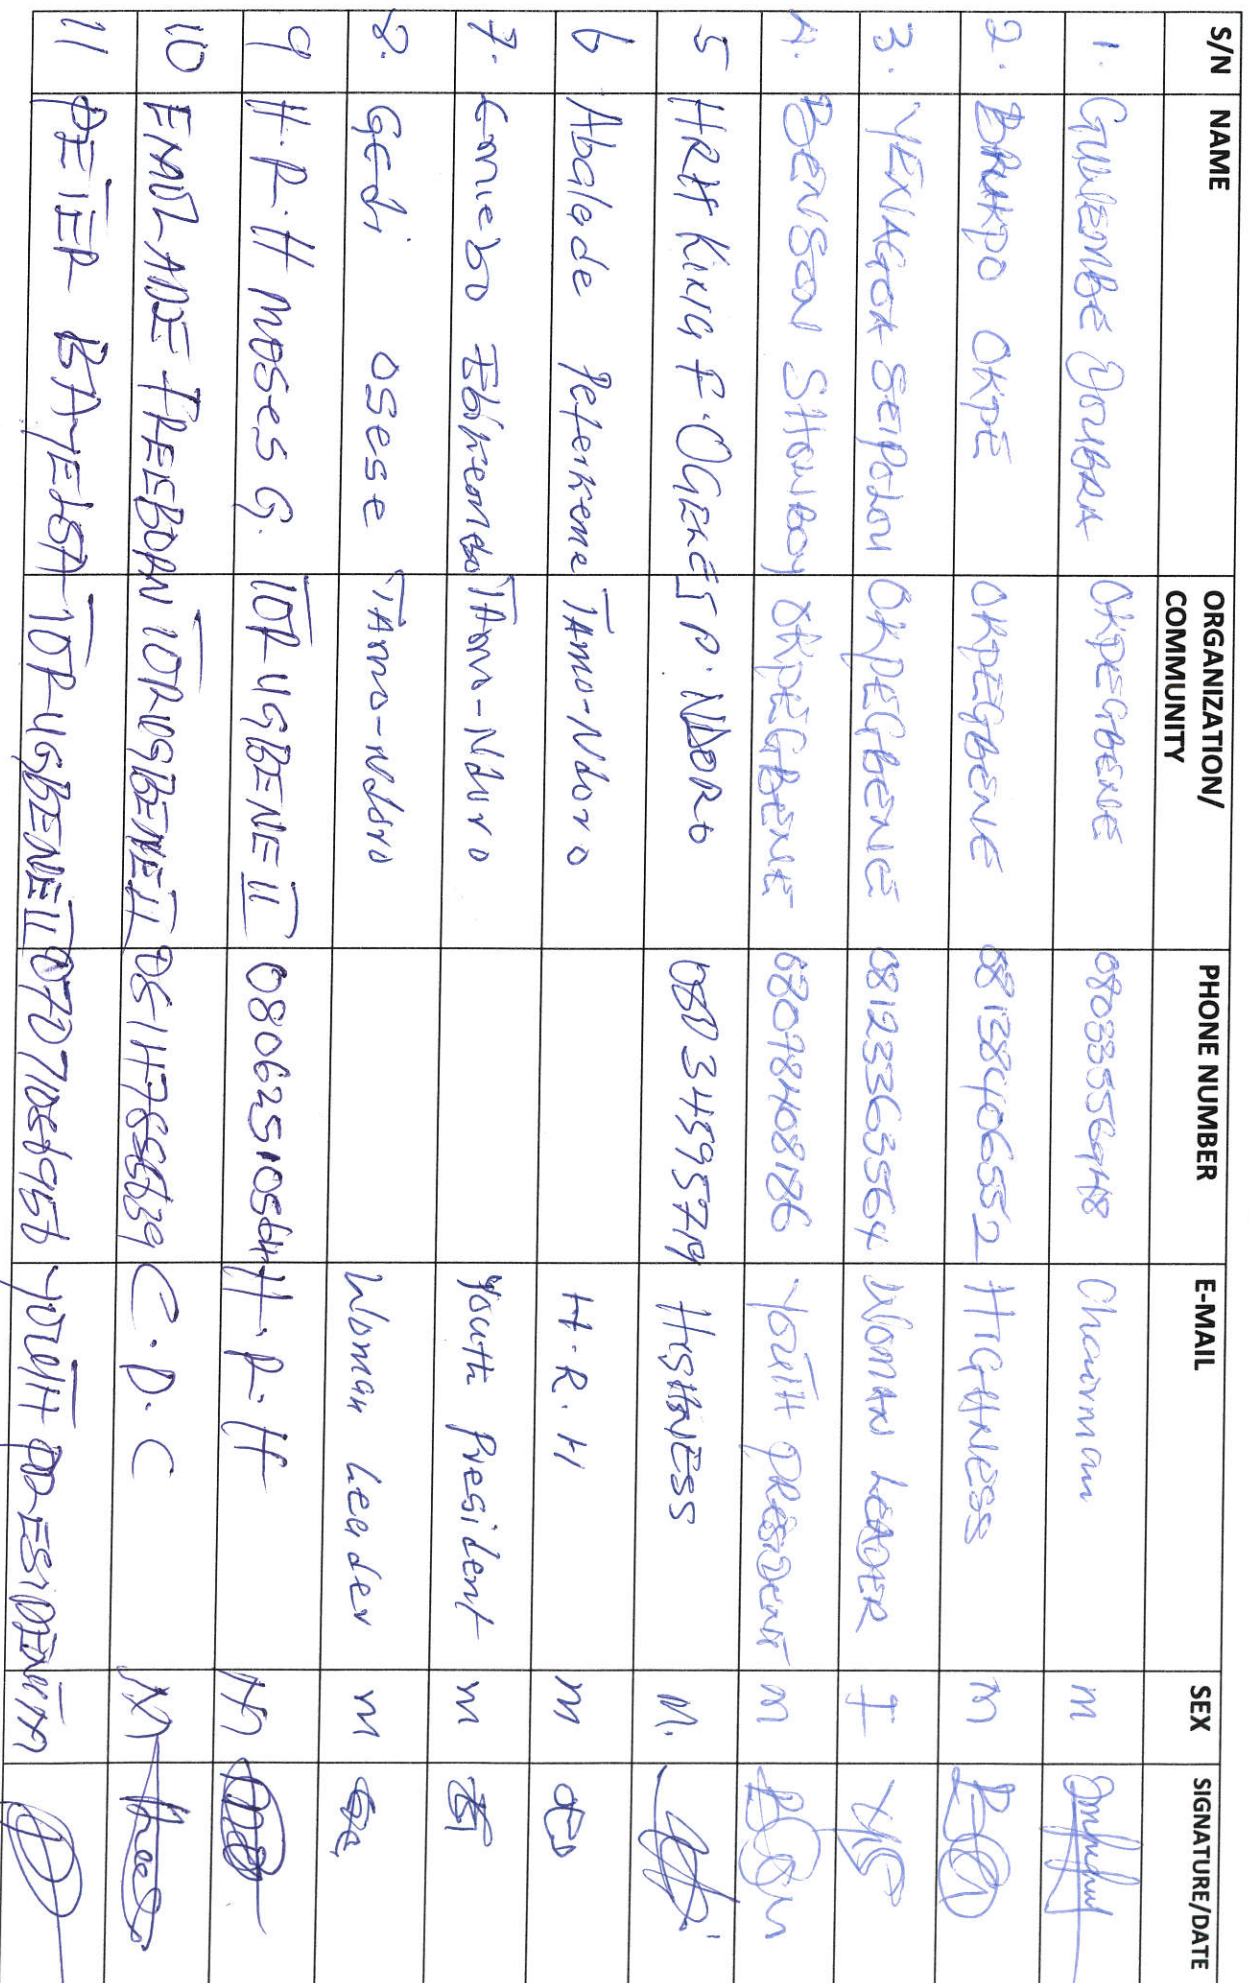 S/N NAME ORGANIZATION/ COMMUNITY PHONE NUMBER E-MAIL SEX SIGNATURE/DATE
1. OKPEGBENE 08033556948 Chairman m
2. BRUKPO OKPE OKPEGBENE 08138406552 HIGHNESS m
3. YENAGOA SEIPOLOU OKPEGBENE 08123363564 WOMAN LEADER F
4. BENSON SHOWBOY OKPEGBENE 08078408186 YOUTH PRESIDENT m
5 HRH KING F. P. NDORO HIGHNESS M.
6 Abalade Peterkeme TAMO-Ndoro H.R.H m
7. TAmo-Ndoro Youth President m
8. GEdi osese TAmo-Ndoro Woman Leader m
9 H.R.H MOSES G. TORUGBENE II H.R.H M
10 FREEBORN TORUGBENE II C.D.C M
11 PETER BAYELSA TORUGBENE II YOUTH PRESIDENT M